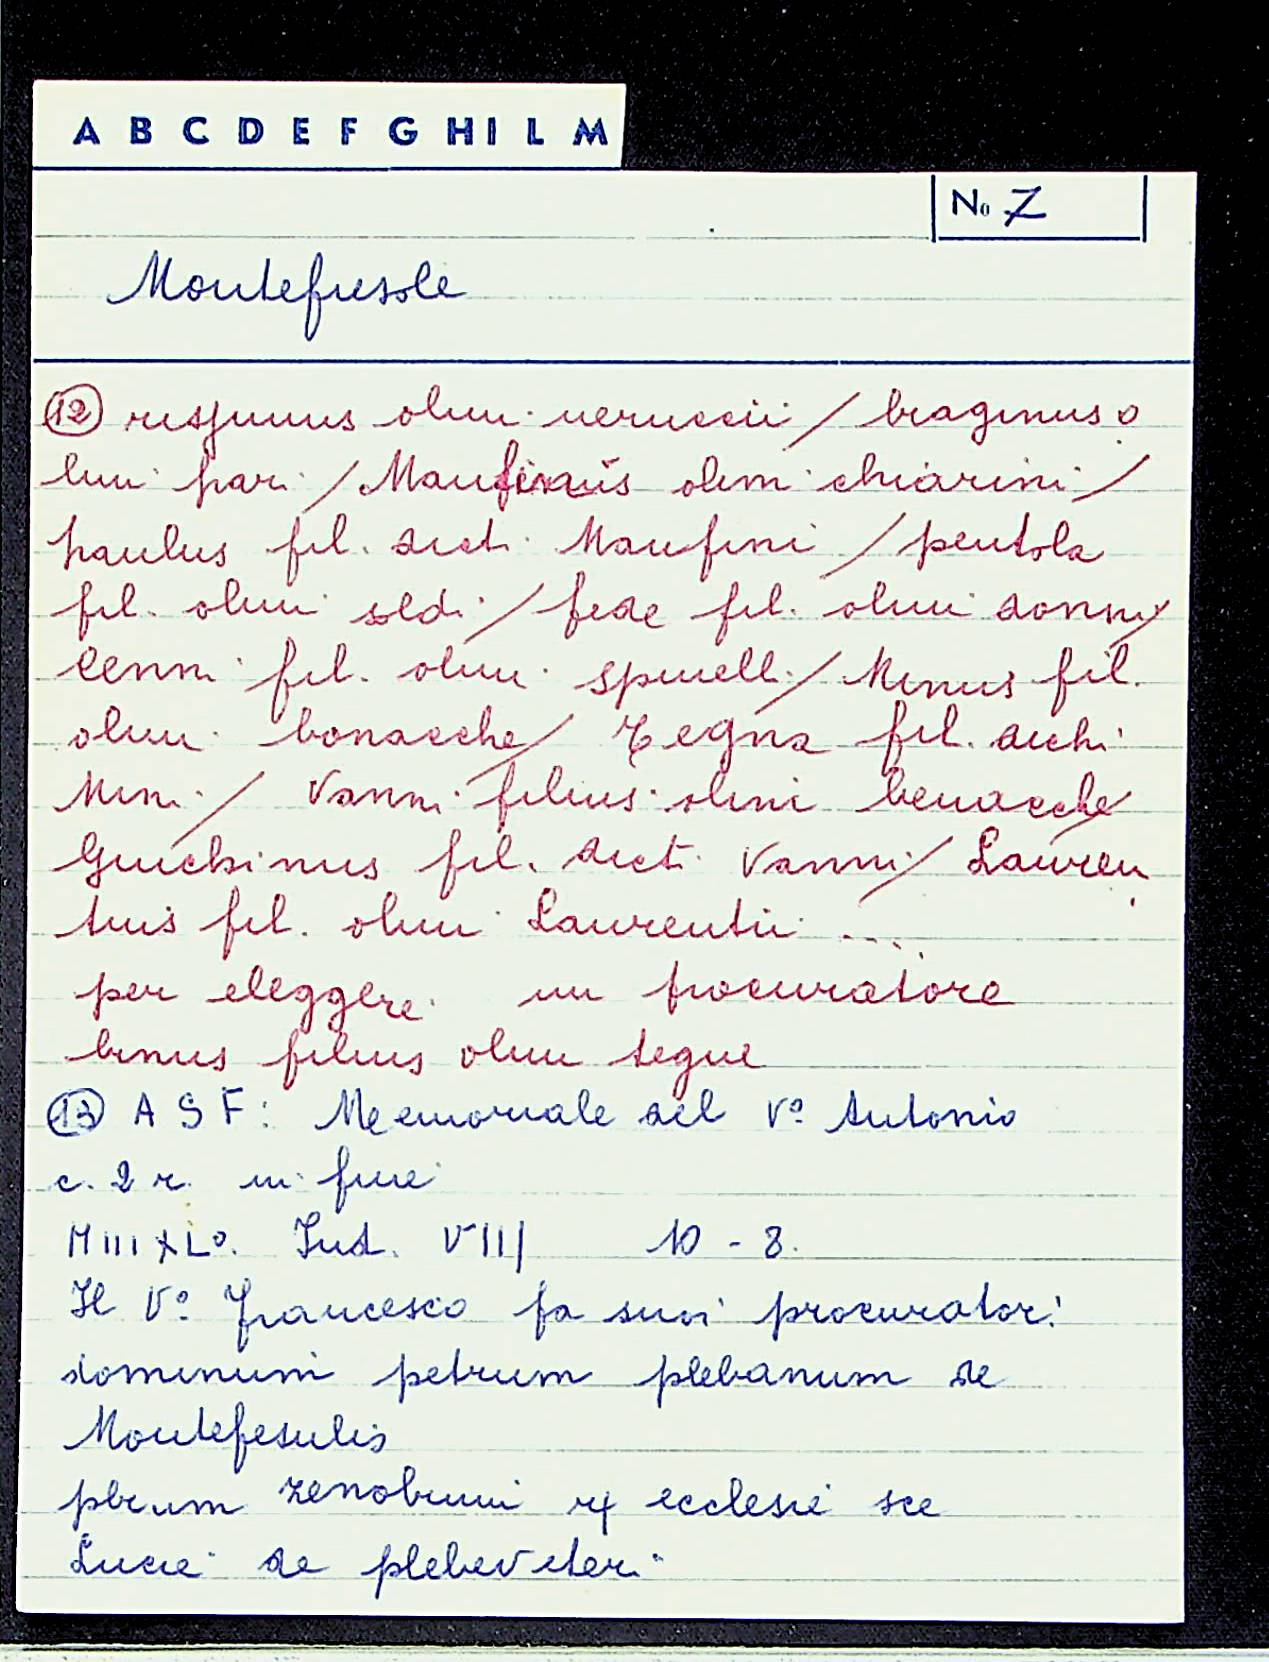 A B C D E F G H I L M
No 7
Montefiesole
(12) olim veruccii / braginus o
lim pari / Manfinus olim chiarini /
paulus fil. dicti Manfini / pentola
fil. olim soldi / fede fil. olim donni /
Cenni fil. olim spinelli / Minus fil.
olim bonacche / Tegna fil. dicti
Mini / Vanni filius olim benacche /
Guichinus fil. dicti Vanni / Lauren
tius fil. olim Laurentii ....
per eleggere un procuratore
binus filius olim tegne
(13) A S F: Memoriale del Vº Antonio
c. 2 r. in fine
M III XLº. Ind. VIII 10 - 8.
Il Vº Francesco fa suoi procuratori
dominum petrum plebanum de
Montefesulis
pbrum zenobium ecclesie sce
Lucie de plebeveteri